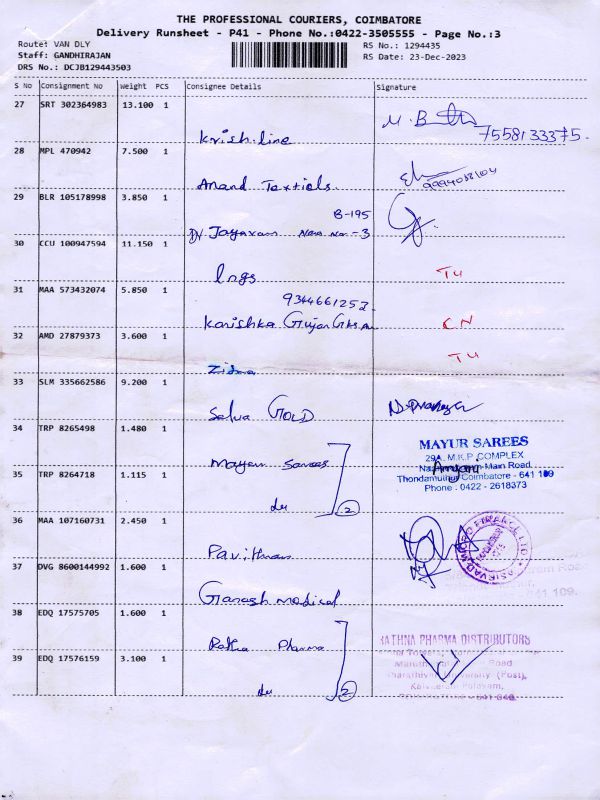 THE PROFESSIONAL COURIERS, COIMBATORE
Delivery Runsheet - P41 - Phone No.:0422-3505555 - Page No.:3
Route: VAN DLY RS No.: 1294435
Staff: GANDHIRAJAN RS Date: 23-Dec-2023
DRS No.: DCJB129443503
S No Consignment No Weight PCS Consignee Details Signature
27 SRT 302364983 13.100 1
Krish line 75581 33375
28 MPL 470942 7.500 1
Anand Textiels
29 BLR 105178998 3.850 1
B-195
Dr Jayaram New No -3
30 CCU 100947594 11.150 1
lngs TU
31 MAA 573432074 5.850 1
9344661252
Karishka CN
32 AMD 27879373 3.600 1
TU
33 SLM 335662586 9.200 1
Selva GOLD
34 TRP 8265498 1.480 1
Mayem Sarees
MAYUR SAREES
29A, M.K.P. COMPLEX
Main Road,
Coimbatore - 641 109
Phone : 0422 - 2618373
35 TRP 8264718 1.115 1
du 2
36 MAA 107160731 2.450 1
37 DVG 8600144992 1.600 1
641 109.
Ganash medical
38 EDQ 17575705 1.600 1
Ratha Pharma
RATHNA PHARMA DISTRIBUTORS
39 EDQ 17576159 3.100 1
Road
(Post),
du 2